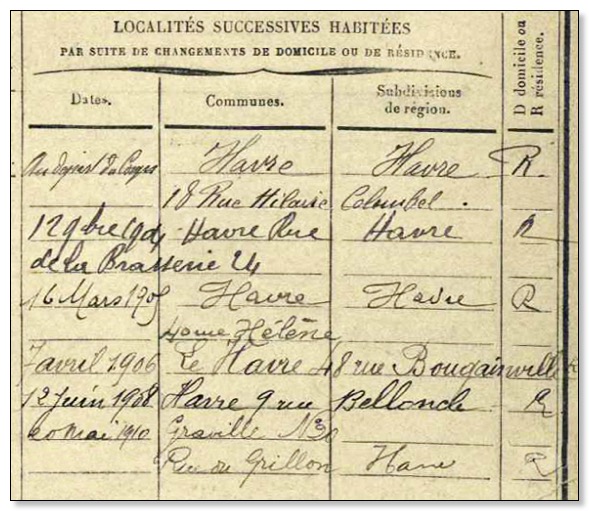 LOCALITÉS SUCCESSIVES HABITÉES
PAR SUITE DE CHANGEMENTS DE DOMICILE OU DE RÉSIDENCE.
Dates. Communes. Subdivisions de région. D domicile ou R résidence.
Au départ du Corps Havre Havre R.
18 Rue Hilaire Colombel.
12 9bre 1904 Havre Rue Havre R
de la Brasserie 24
16 Mars 1905 Havre Havre R
Hélène
7 avril 1906 Le Havre 48 rue Bougainville R
12 Juin 1908 Havre 9 rue Bellonde R
20 mai 1910 Graville N°30
Rue du Grillon Havre R